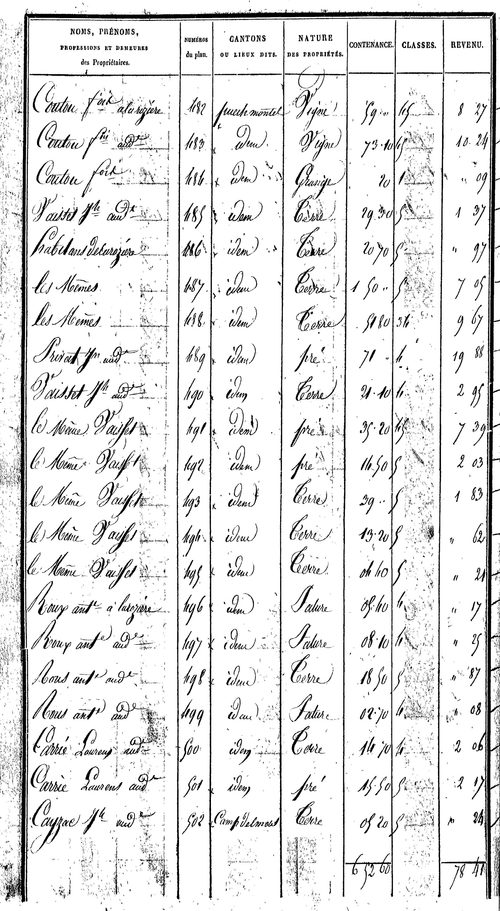 NOMS, PRÉNOMS, PROFESSIONS ET DEMEURES des Propriétaires. NUMÉROS du plan. CANTONS OU LIEUX DITS. NATURE DES PROPRIÉTÉS. CONTENANCE. CLASSES. REVENU.
Coulou à larozière 482 puech montet Vigne 59 " 8 27
Coulou aud.e 483 idem Vigne 73 10 10 24
Coulou 484 idem 20 " 09
Vaisset J.h aud.e 485 idem Terre 29 30 5 1 37
habitans de larozière 486 idem Terre 20 70 5 " 97
les Mêmes 487 idem Terre 1 50 " 5 7 05
les Mêmes 488 idem Terre 9 67
Privat aud.e 489 idem pré 71 " 4 19 88
Vaisset J.h aud.e 490 idem Terre 21 10 4 2 95
le Même Vaisset 491 idem pré 35 20 7 39
le Même Vaisset 492 idem pré 14 50 5 2 03
le Même Vaisset 493 idem Terre 39 " 5 1 83
le Même Vaisset 494 idem Terre 13 20 5 " 62
le Même Vaisset 495 idem Terre 04 40 5 " 21
Roux ant.e à larozière 496 idem Pature 05 40 4 " 17
Roux ant.e aud.e 497 idem Pature 08 10 4 " 25
Rous ant.e aud.e 498 idem Terre 18 50 5 " 87
Rous ant.e aud.e 499 idem Pature 02 70 4 " 08
Carrié Laurens aud.e 500 idem Terre 14 70 4 2 06
Carrié Laurens aud.e 501 idem pré 15 50 5 2 17
Cayzac J.h aud.e 502 Camp delmas Terre 05 20 5 " 24
6 52 60 78 41